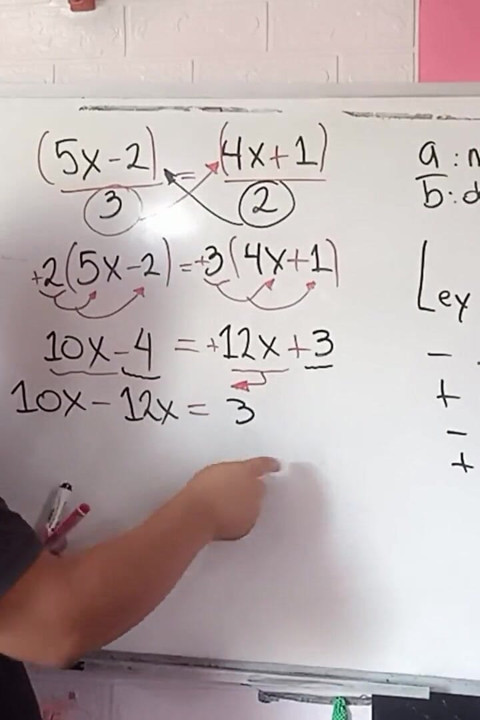 (5x-2) = (4x+1)
3 2
+2(5x-2)=+3(4x+1)
10x-4 = +12x+3
10x-12x= 3
a:
b:
Ley
-
+
-
+